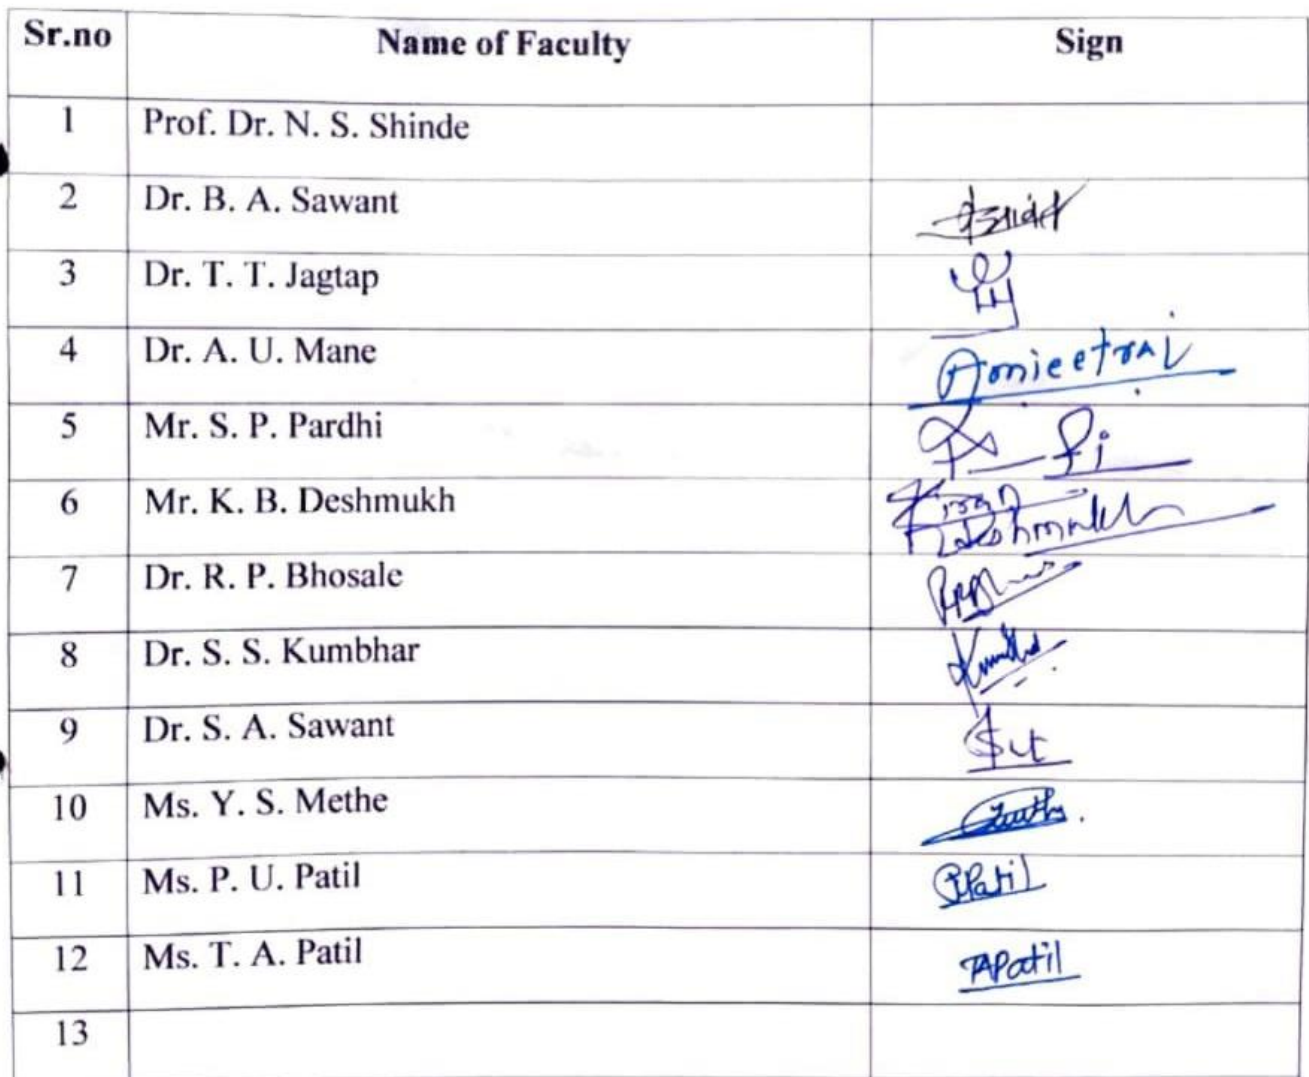 Sr.no Name of Faculty Sign
1 Prof. Dr. N. S. Shinde
2 Dr. B. A. Sawant
3 Dr. T. T. Jagtap
4 Dr. A. U. Mane
5 Mr. S. P. Pardhi
6 Mr. K. B. Deshmukh Kiran Deshmukh
7 Dr. R. P. Bhosale
8 Dr. S. S. Kumbhar
9 Dr. S. A. Sawant
10 Ms. Y. S. Methe
11 Ms. P. U. Patil PPatil
12 Ms. T. A. Patil TAPatil
13